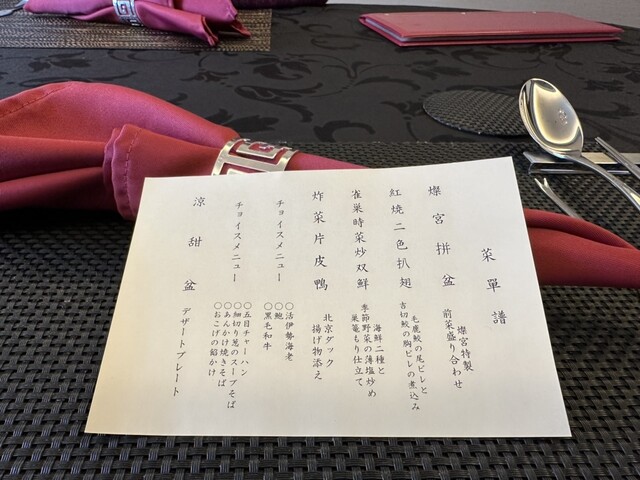 菜單譜
燦宮拼盆
燦宮特製
前菜盛り合わせ
紅焼二色扒翅
毛鹿鮫の尾ビレと
吉切鮫の胸ビレの煮込み
雀巣時菜炒双鮮
海鮮二種と
季節野菜の薄塩炒め
巣篭もり仕立て
炸菜片皮鴨
北京ダック
揚げ物添え
チョイスメニュー
〇活伊勢海老
〇鮑
〇黒毛和牛
チョイスメニュー
〇五目チャーハン
〇細切り葱のスープそば
〇あんかけ焼きそば
〇おこげの餡かけ
涼甜盆
デザートプレート